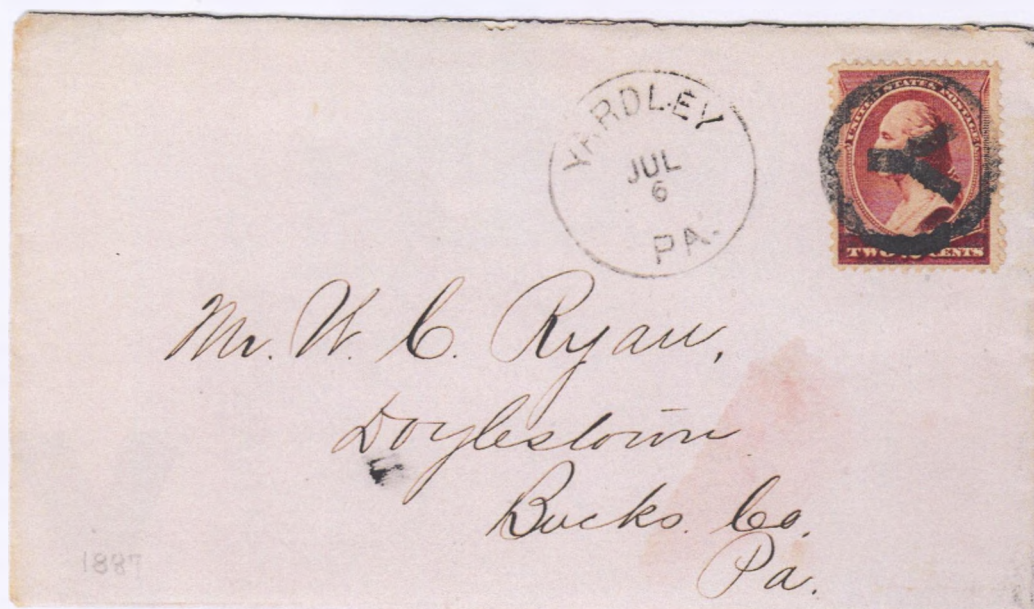 YARDLEY
JUL
6
PA.
UNITED STATES POSTAGE
TWO CENTS
Mr. W. C. Ryan,
Doylestown
Bucks. Co.
Pa.
1887